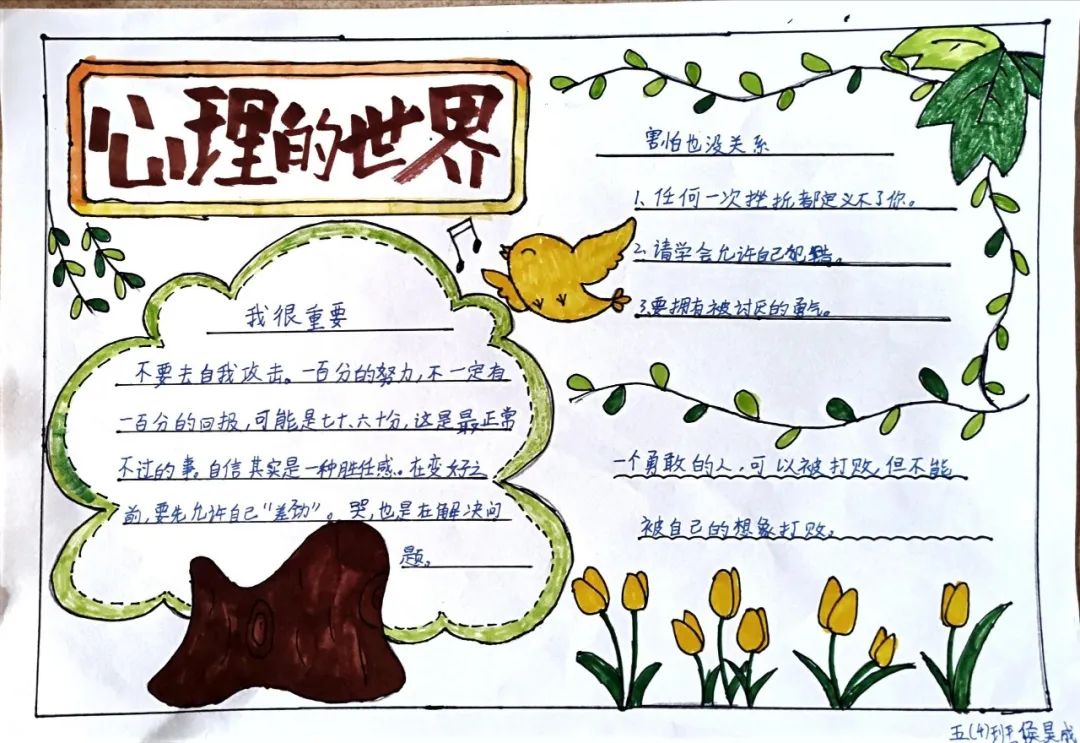 心理的世界
我很重要
不要去自我攻击。一百分的努力,不一定有
一百分的回报,可能是七十、六十分,这是最正常
不过的事。自信其实是一种胜任感。在变好之
前,要先允许自己“差劲”。哭,也是在解决问
题。
害怕也没关系
1、任何一次挫折都定义不了你。
2、请学会允许自己犯错。
3、要拥有被讨厌的勇气。
一个勇敢的人,可以被打败,但不能
被自己的想象打败。
五(4)班侯昊成